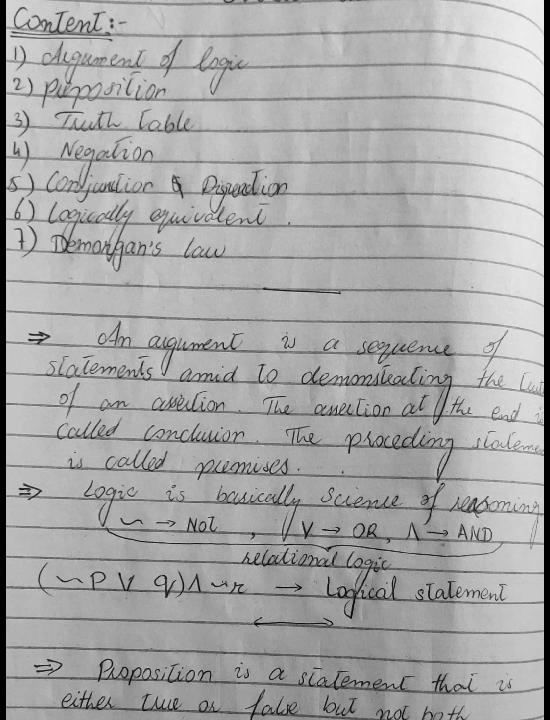 Content:-
1) Argument of logic
2) Preposition
3) Truth Table
4) Negation
5) Conjunction & Disjunction
6) Logically equivalent.
7) Demorgan's law
⇒ An argument is a sequence of
statements amid to demonstrating the
of an assertion. The assertion at the end
called conclusion. The proceding
is called premises.
⇒ Logic is basically science of reasoning
~ → Not , V → OR, Λ → AND
relational logic
(~P V q) Λ ~r → Logical statement
⇒ Proposition is a statement that is
either true or false but not both